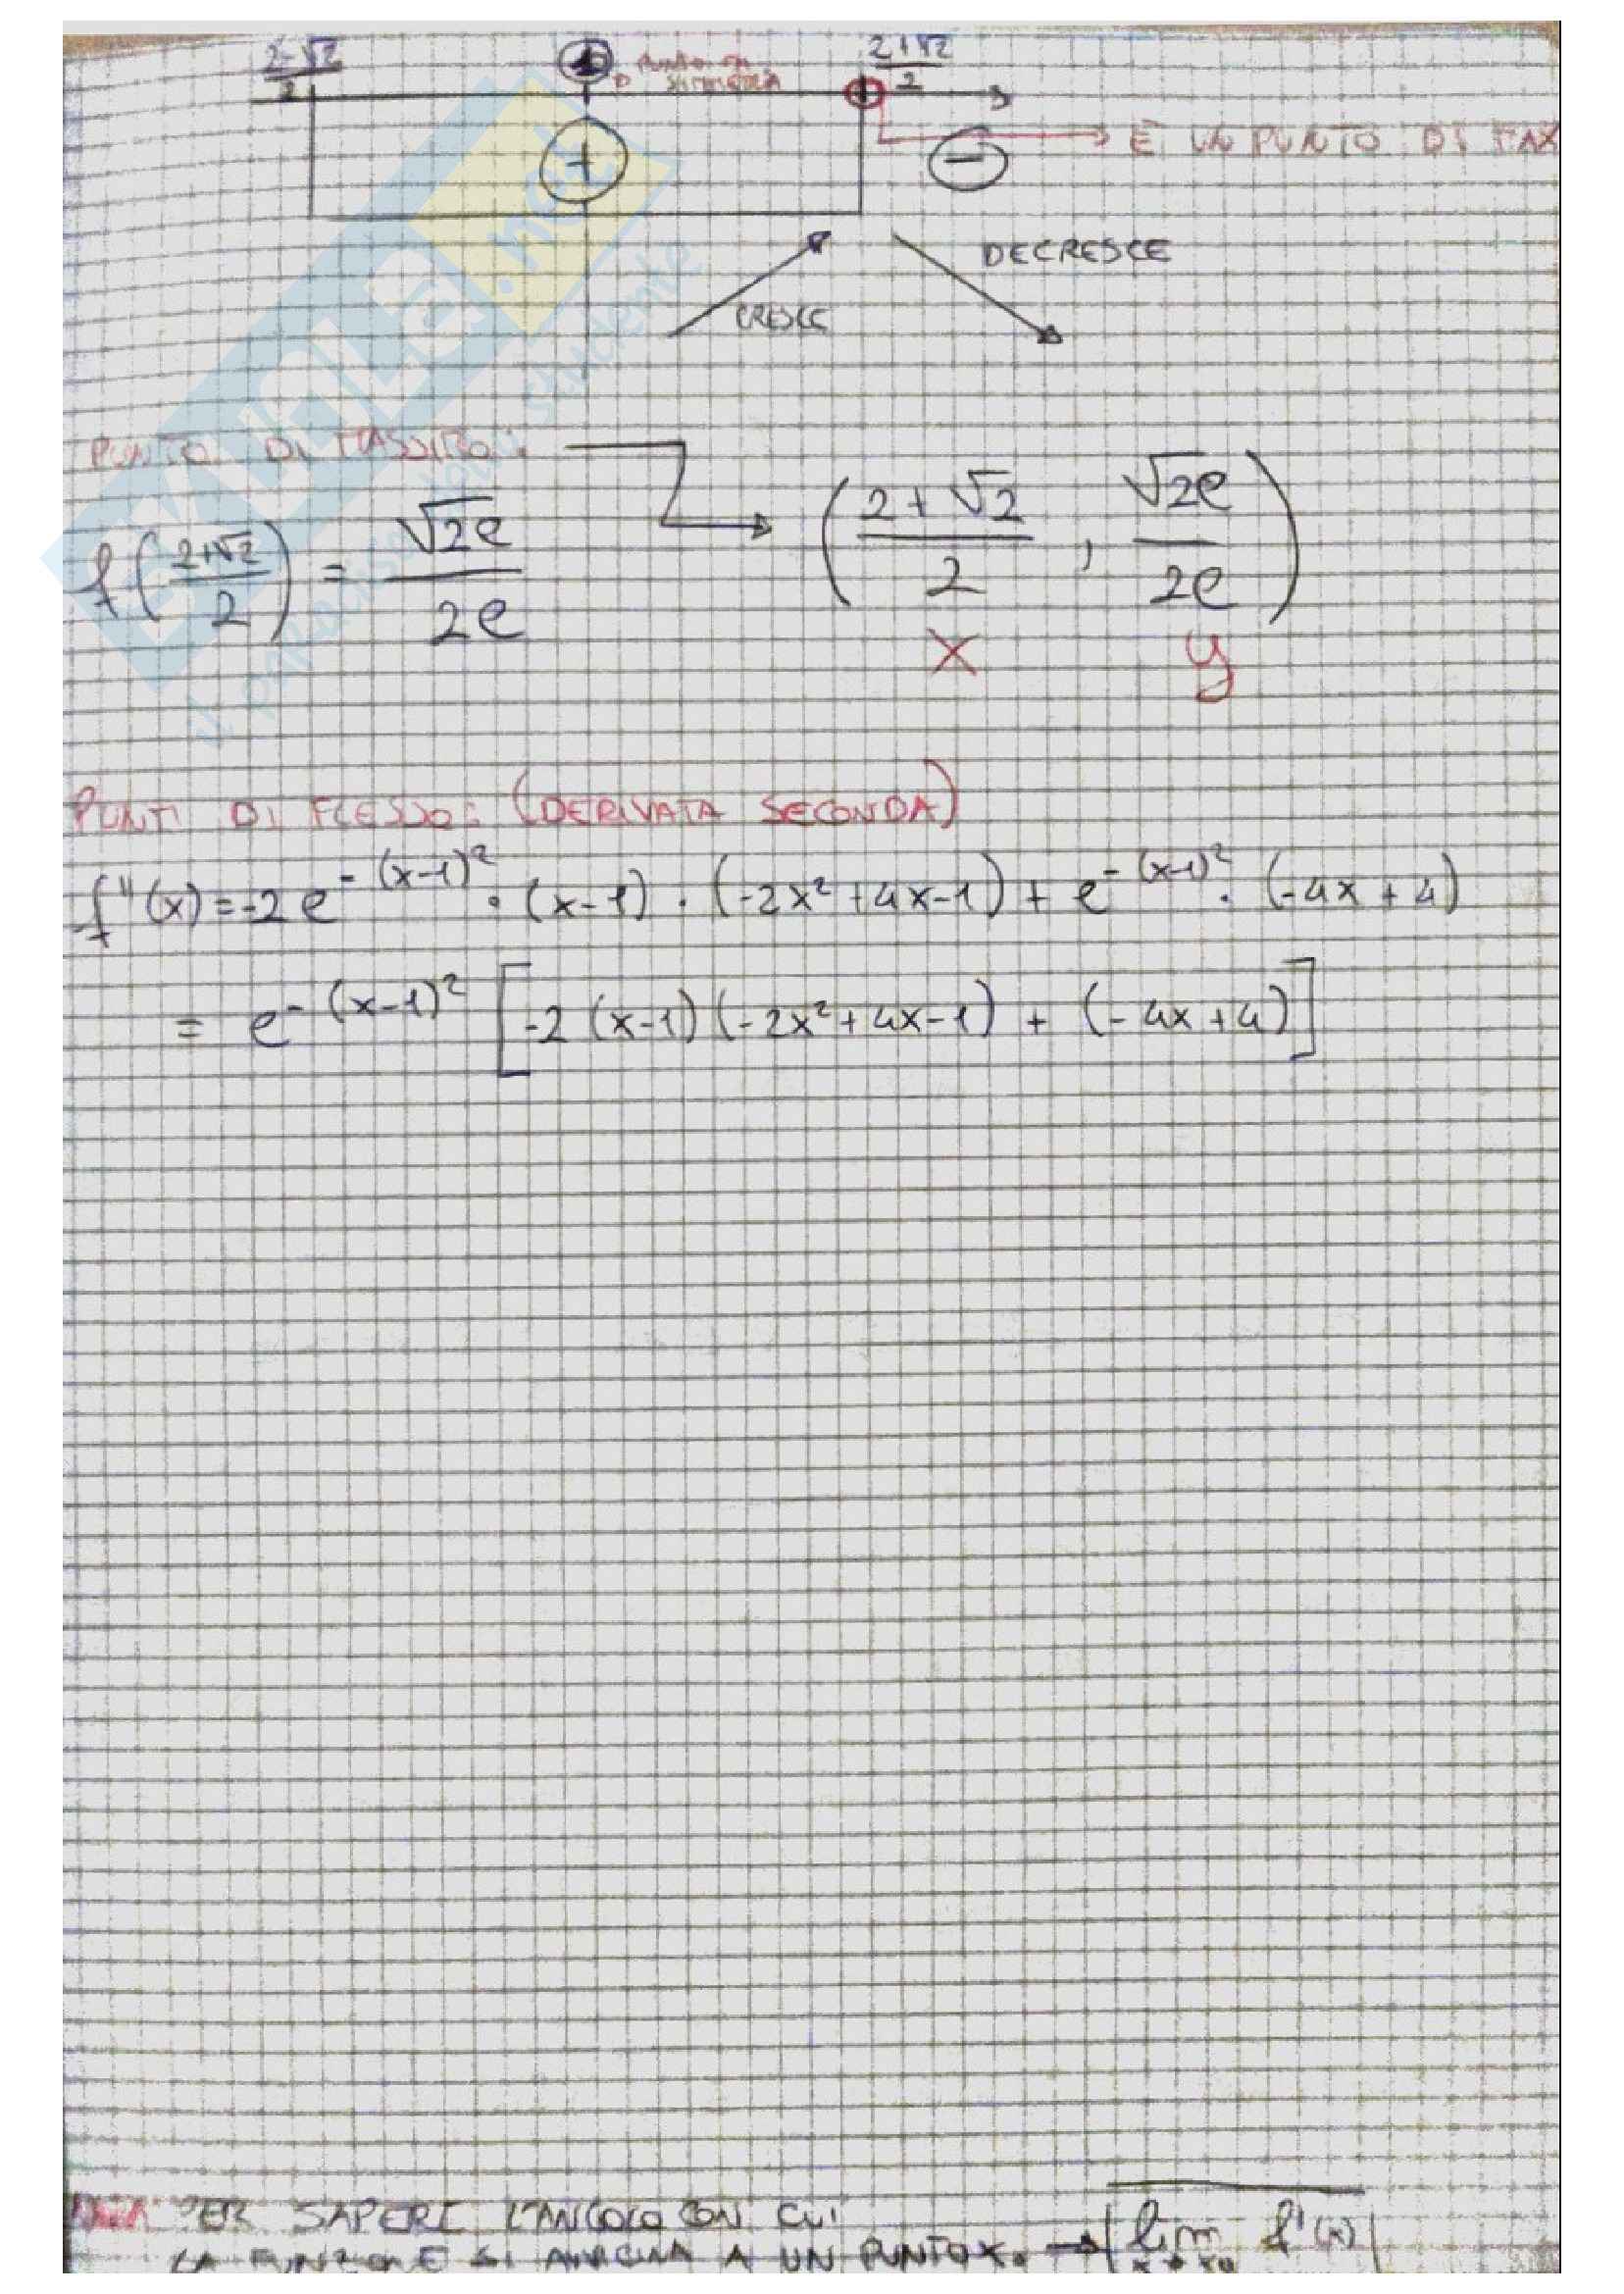 2-√2/2 1 PUNTO DI SIMMETRIA 2+√2/2
È UN PUNTO DI MAX
+ -
DECRESCE
CRESCE
PUNTO DI MASSIMO:
f(2+√2/2) = √2e/2e (2+√2/2, √2e/2e)
x y
PUNTI DI FLESSO: (DERIVATA SECONDA)
f"(x) = -2e^-(x-1)² · (x-1) · (-2x²+4x-1) + e^-(x-1)² · (-4x+4)
= e^-(x-1)² [-2(x-1)(-2x²+4x-1) + (-4x+4)]
PER SAPERE L'ANGOLO CON CUI
LA FUNZIONE SI AVVICINA A UN PUNTO x₀ → lim x→x₀ f'(x)
SKUOLA.net
il paradiso dello studente